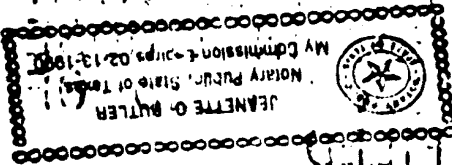 JEANETTE O. BUTLER
Notary Public, State of Texas
My Commission Expires 02-13-1990